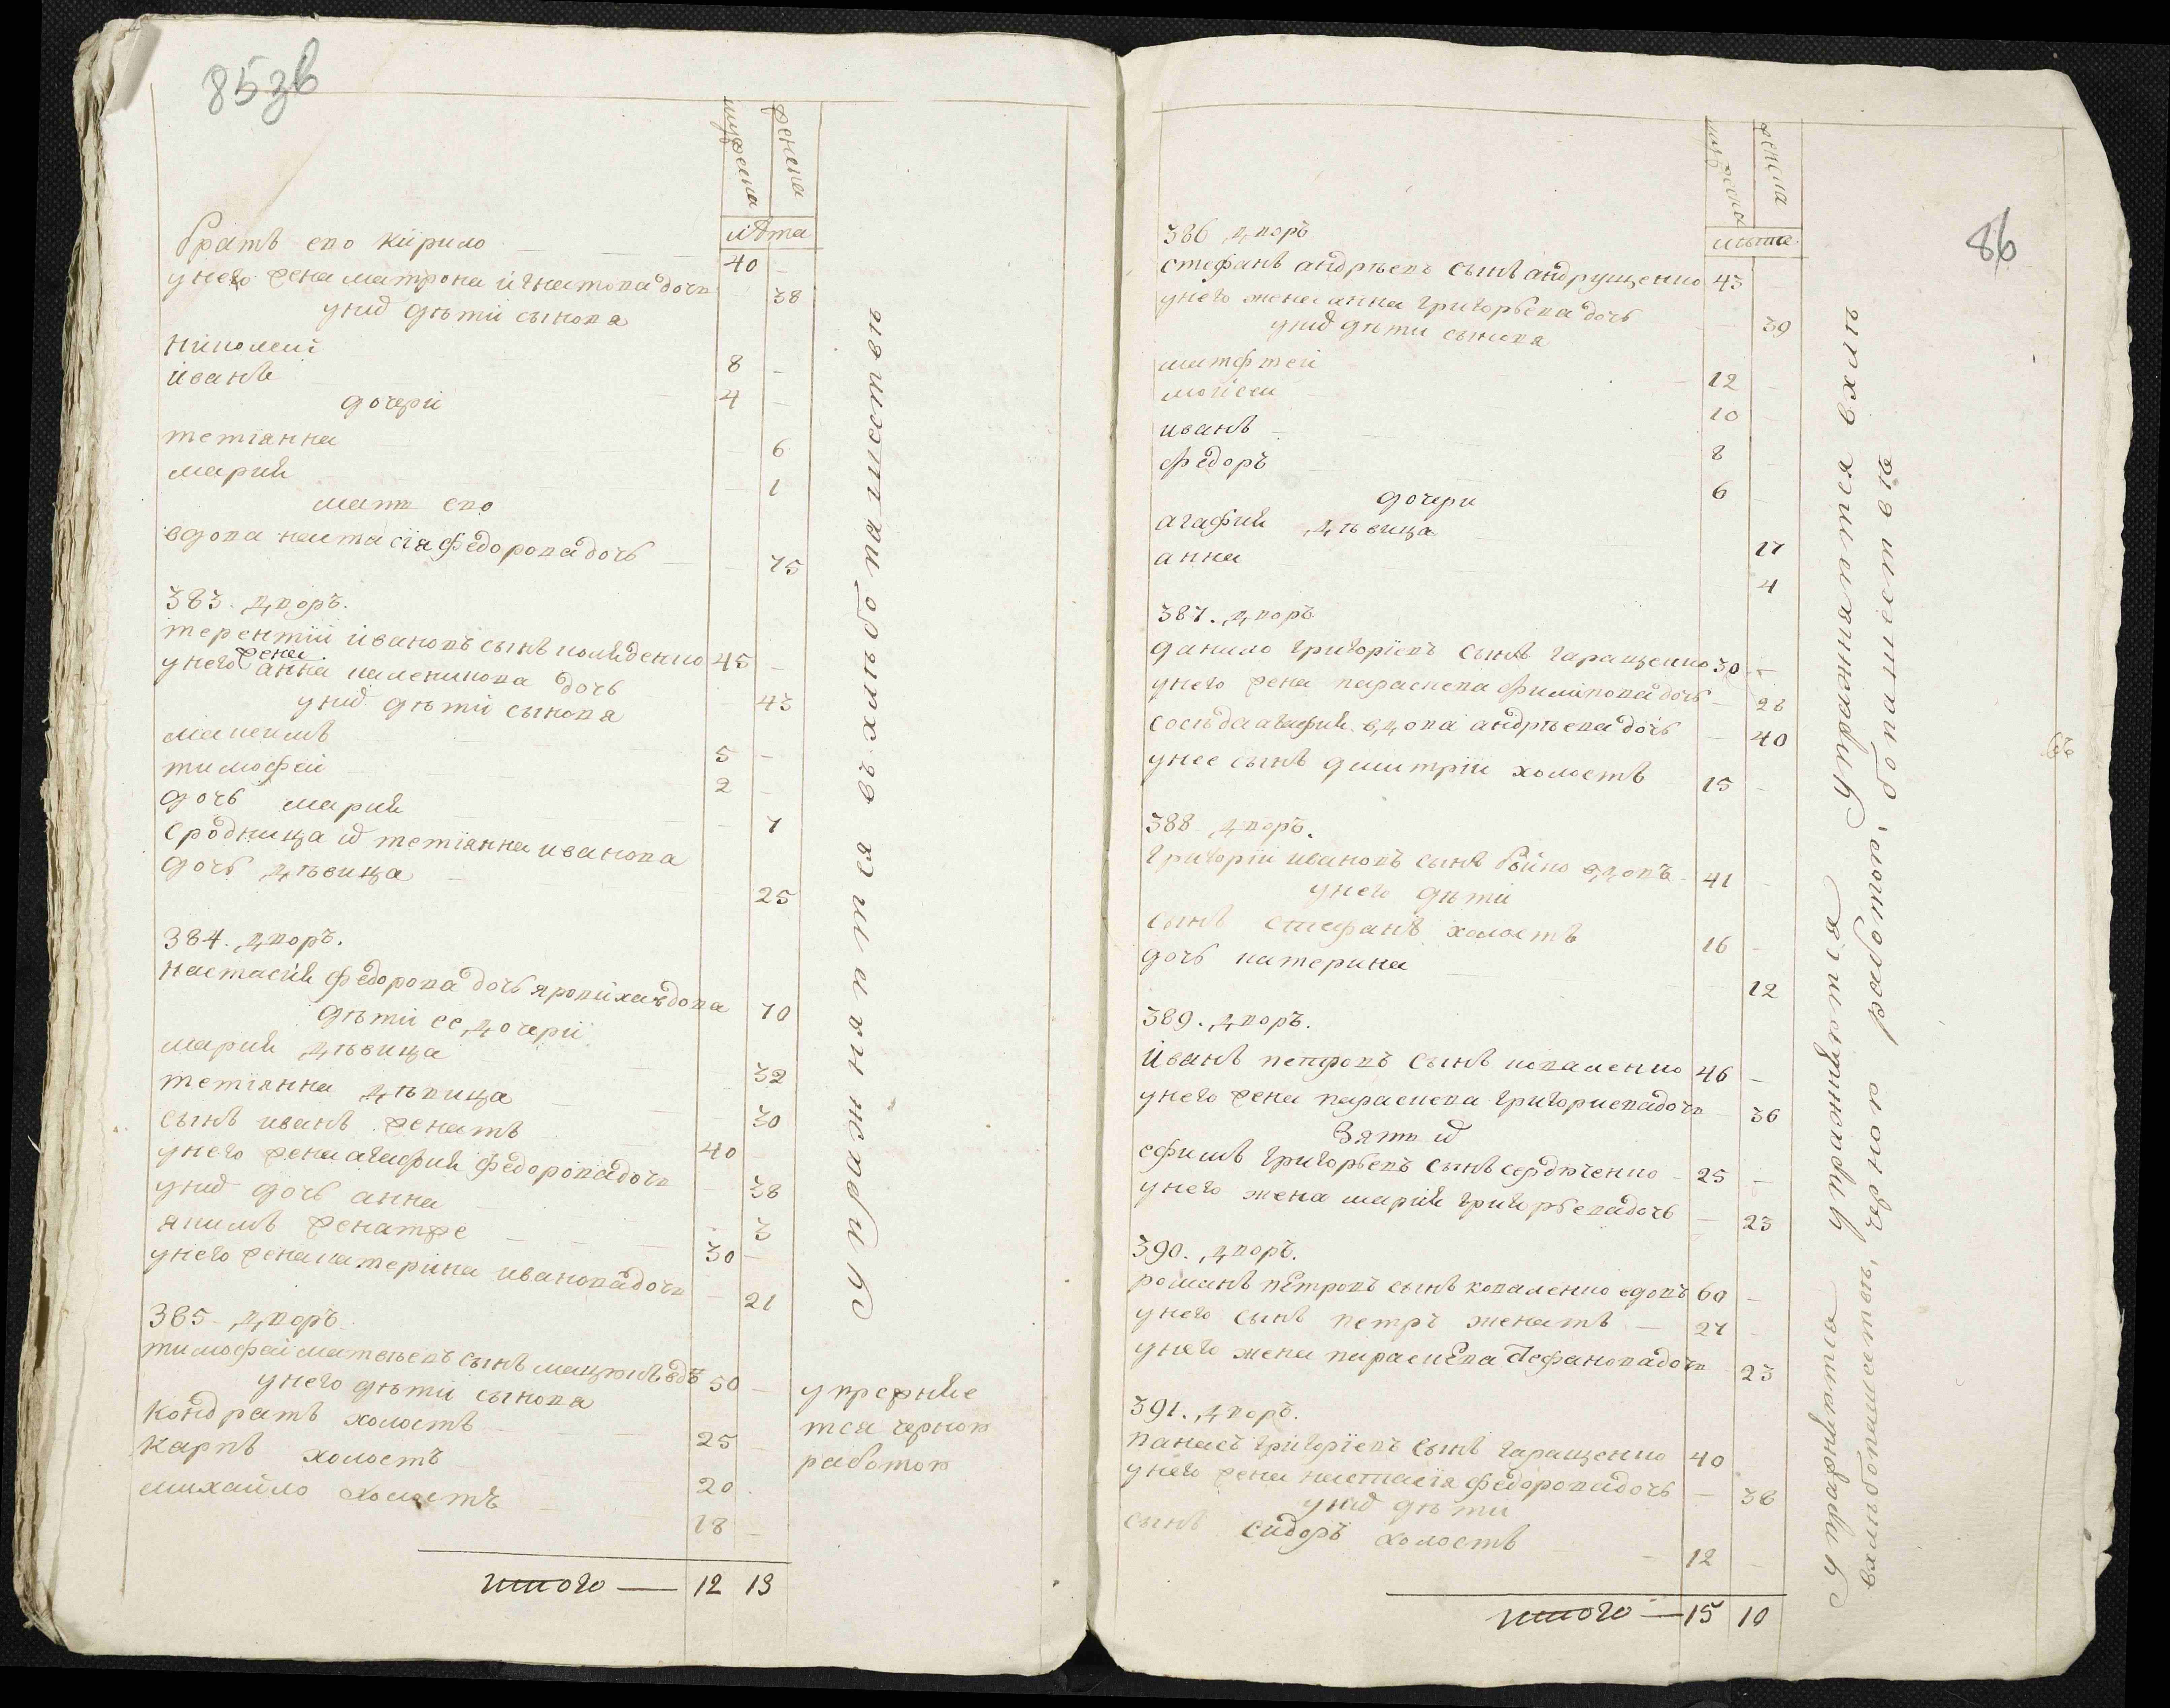 85зв
мужеска
женска
лѣта
братъ его кирило 40
унего жена матрона игнатова дочь 38
унихъ дѣти сынова
николай 8
иванъ 4
дочери
тетіянна 6
мария 1
мать его
вдова настасія федорова дочь 75
383. дворъ.
терентий ивановъ сынъ коляденко 45
унего жена анна каленикова дочь 43
унихъ дѣти сынова
максимъ 5
тимофей 2
дочь мария 7
сродница ихъ тетіянна иванова
дочь дѣвица 25
384. дворъ.
настасия федорова дочь яровиха вдова 70
дѣти ее дочери
мария дѣвица 32
тетіянна дѣвица 30
сынъ иванъ женатъ 40
унего жена агафия федорова дочь 38
унихъ дочь анна 3
якимъ женатже 30
унего жена катерина иванова дочь 21
385 дворъ
тимофей матвѣевъ сынъ вдъ 50
унего дѣти сынова
кондратъ холостъ 25
карпъ холостъ 20
михайло холостъ 18
итого — 12 13
упражняются въ хлѣбопашествѣ
упражняе
тся черною
работою
86
мужеска
женска
лѣта
386 дворъ
стефанъ андрѣевъ сынъ андрущенко 43
унего жена анна григорьева дочь 39
унихъ дѣти сынова
матфтей 12
мойсей 10
иванъ 8
федоръ 6
дочери
агафия дѣвица 17
анна 4
387. дворъ
данило григоріевъ сынъ гаращенко 30
унего жена параскева филипова дочь 28
сосѣда агафия вдова андрѣева дочь 40
унее сынъ дмитрий холостъ 15
388 дворъ.
григорий ивановъ сынъ бойко вдовъ 41
унего дѣти
сынъ стефанъ холостъ 16
дочь катерина 12
389. дворъ.
иванъ петровъ сынъ коваленко 46
унего жена параскева григориева дочь 36
зять ихъ
ефимъ григорьевъ сынъ сердюченко 25
унего жена мария григорьева дочь 23
390. дворъ.
романъ петровъ сынъ коваленко вдовъ 60
унего сынъ петръ женатъ 27
унего жена параскева стефанова дочь 23
391. дворъ.
панасъ григоріевъ сынъ гаращенко 40
унего жена настасія федорова дочь 38
унихъ дѣти
сынъ сидоръ холостъ 12
итого — 15 10
упражняются
вхлѣбопашествѣ,
упражняются
черною работою,
упражняются вхлѣ
бопашествѣ